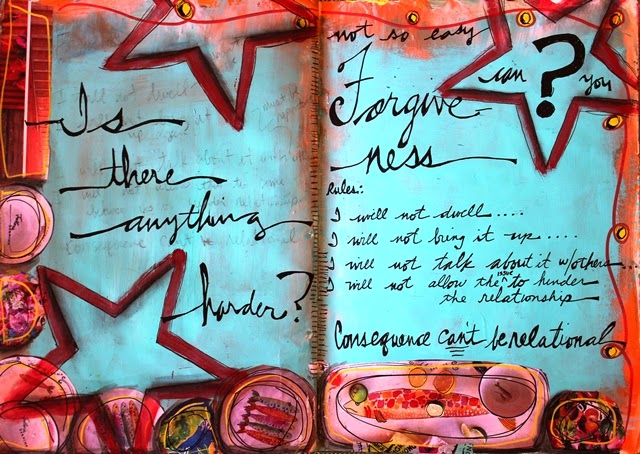 Is
there
anything
harder?
not so easy
Forgive-
ness
can ? you
Rules:
I will not dwell....
I will not bring it up.....
I will not talk about it w/others...
I will not allow the issue to hinder
the relationship
Consequence can't be relational